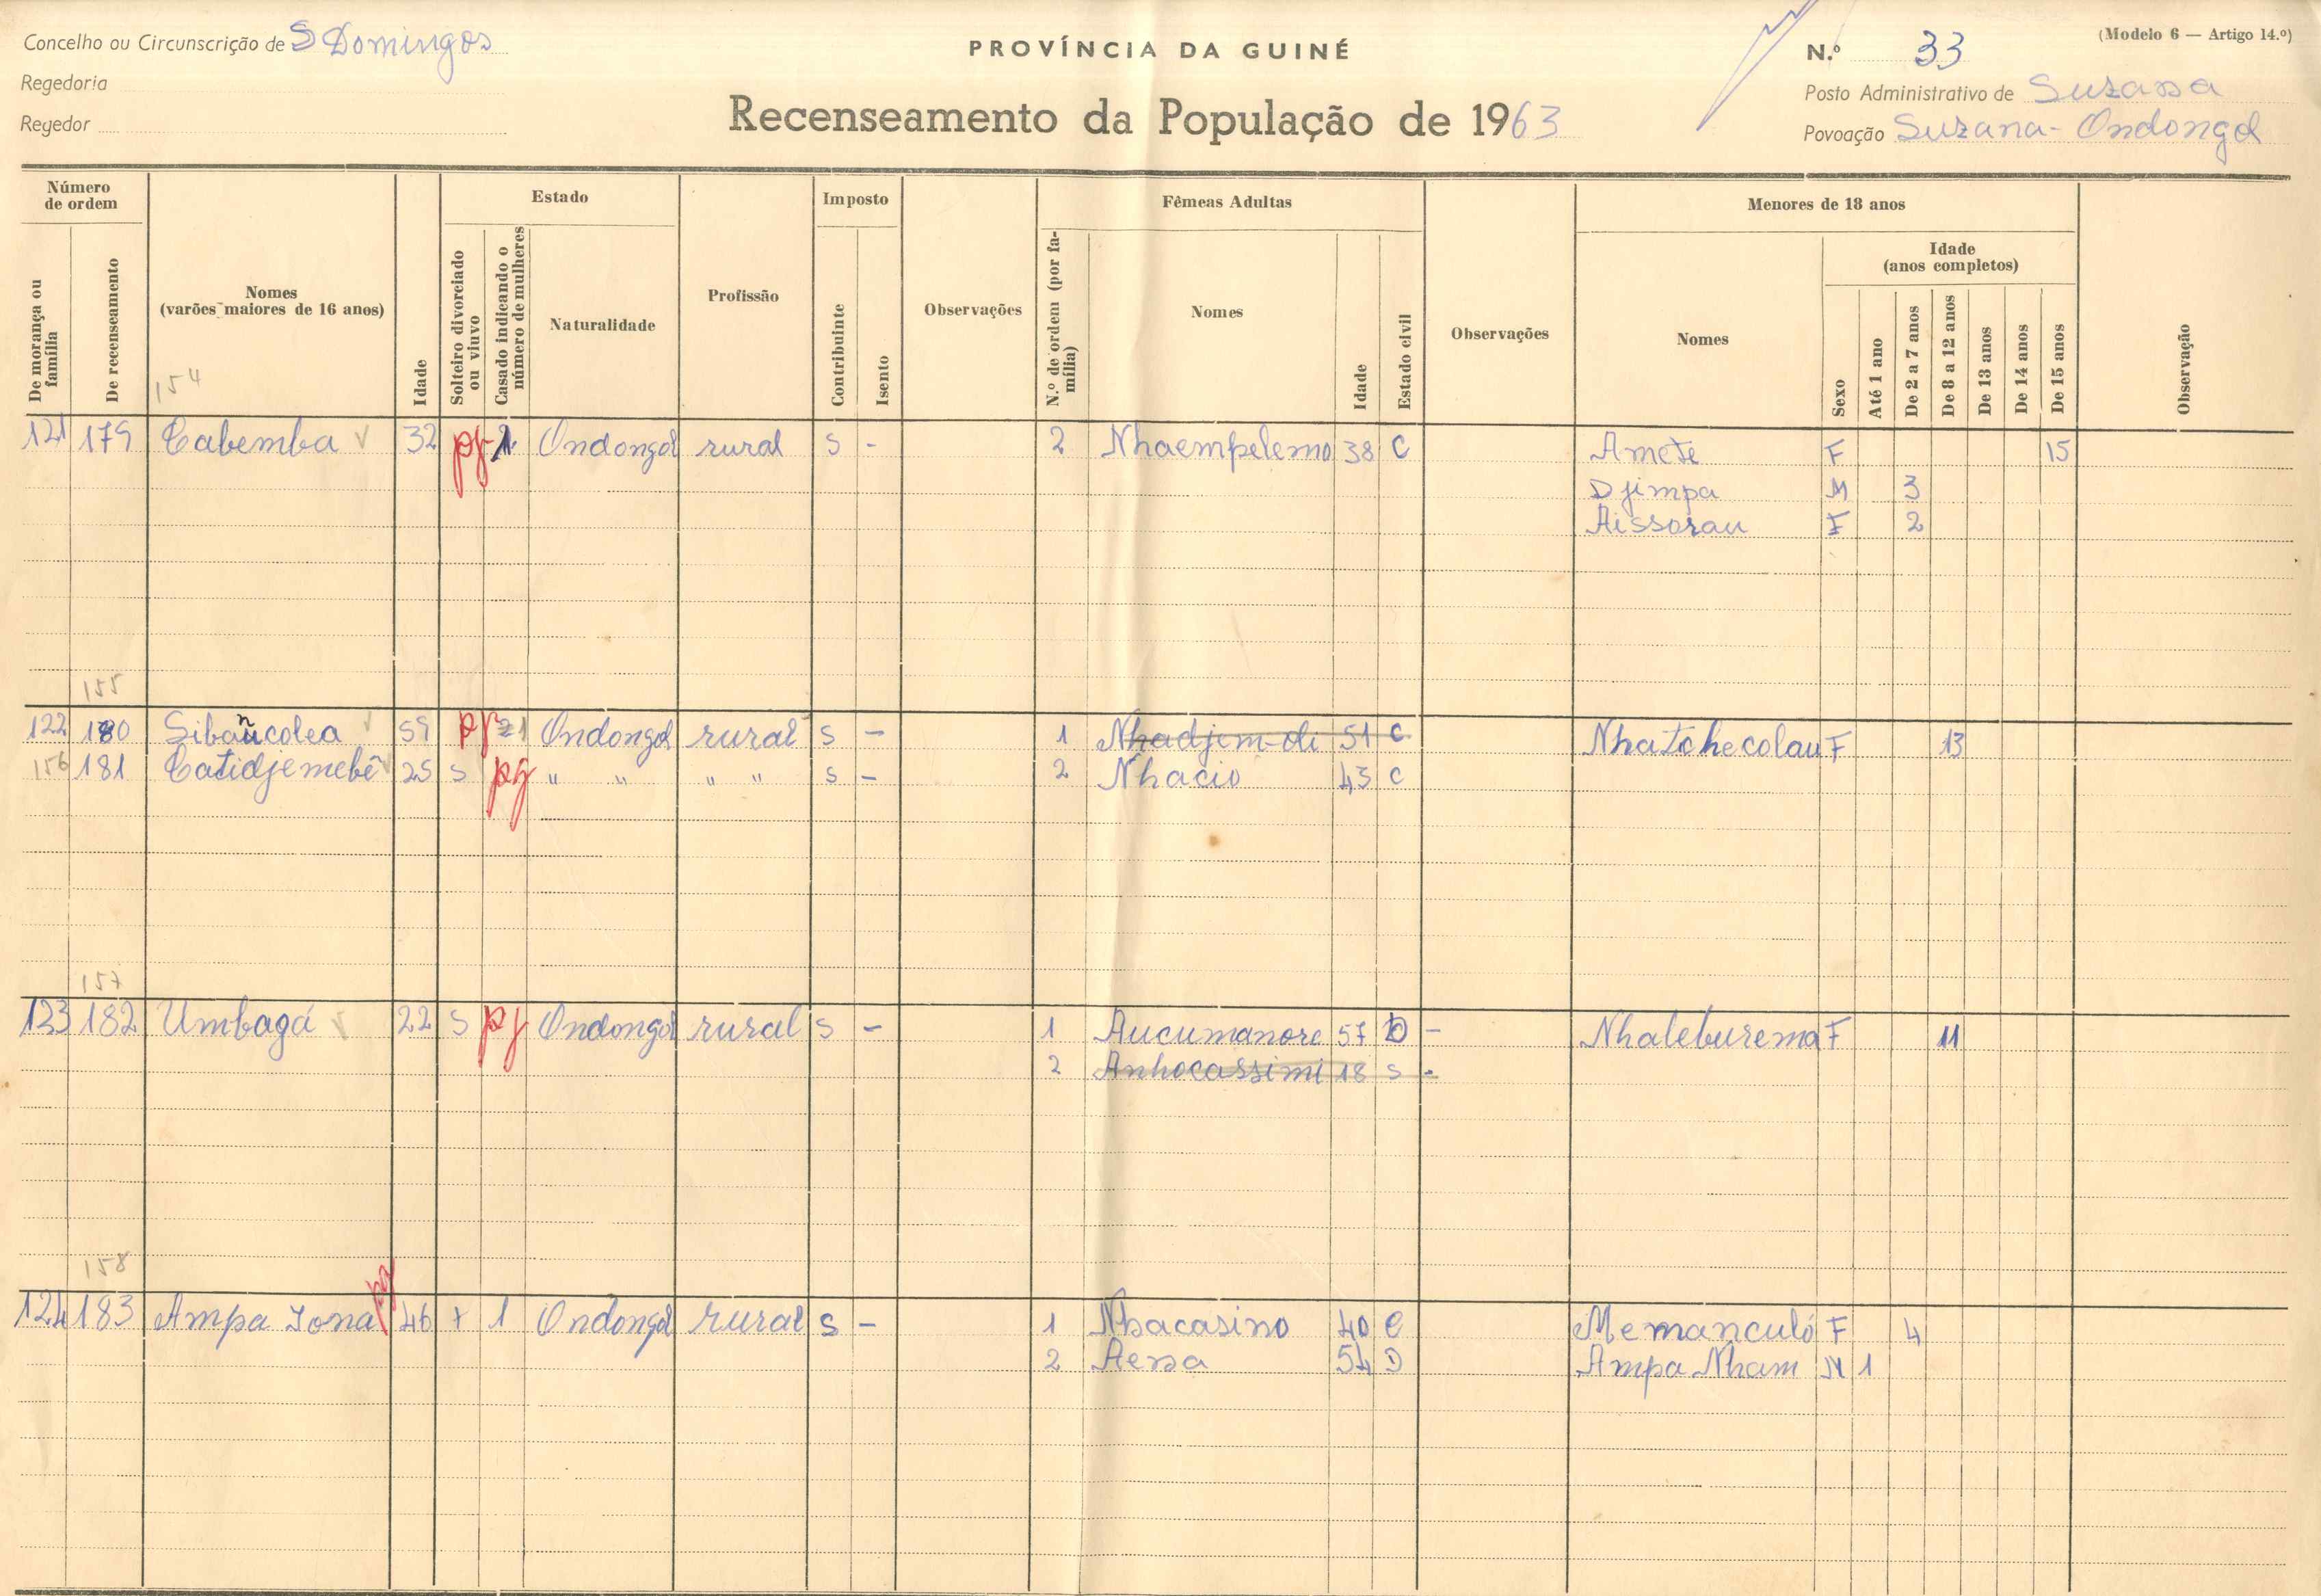 Concelho ou Circunscrição de S Domingos
Regedoria
Regedor
PROVÍNCIA DA GUINÉ
Recenseamento da População de 1963
(Modelo 6 — Artigo 14.º)
N.º 33
Posto Administrativo de Suzana
Povoação Suzana - Ondongol
Número de ordem
De morança ou família
De recenseamento
Nomes
(varões maiores de 16 anos)
Idade
Estado
Solteiro divorciado ou viuvo
Casado indicando o número de mulheres
Naturalidade
Profissão
Imposto
Contribuinte
Isento
Observações
Fêmeas Adultas
N.º de ordem (por família)
Nomes
Idade
Estado civil
Observações
Menores de 18 anos
Nomes
Sexo
Idade
(anos completos)
Até 1 ano
De 2 a 7 anos
De 8 a 12 anos
De 13 anos
De 14 anos
De 15 anos
Observação
154
121 179 Cabemba 32 pg 1 Ondongol rural s - 2 Nhaempelemo 38 C Amete F 15
Djimpa M 3
Aissorau F 2
155
122 180 Sibancolea 59 pg 1 Ondongol rural s - 1 Nhadjem-oli 51 C Nhatchecolau F 13
156 181 Catidjemebê 25 s pg " " " " s - 2 Nhacio 43 C
157
123 182 Umbagá 22 s pg Ondongol rural s - 1 Aucumanore 57 D - Nhaleburema F 11
2 Anhocassimi 18 s -
158
124 183 Ampa Iona pg 46 + 1 Ondongol rural s - 1 Nhacasino 40 C Memanculó F 4
2 Aena 54 D Ampa Nham M 1